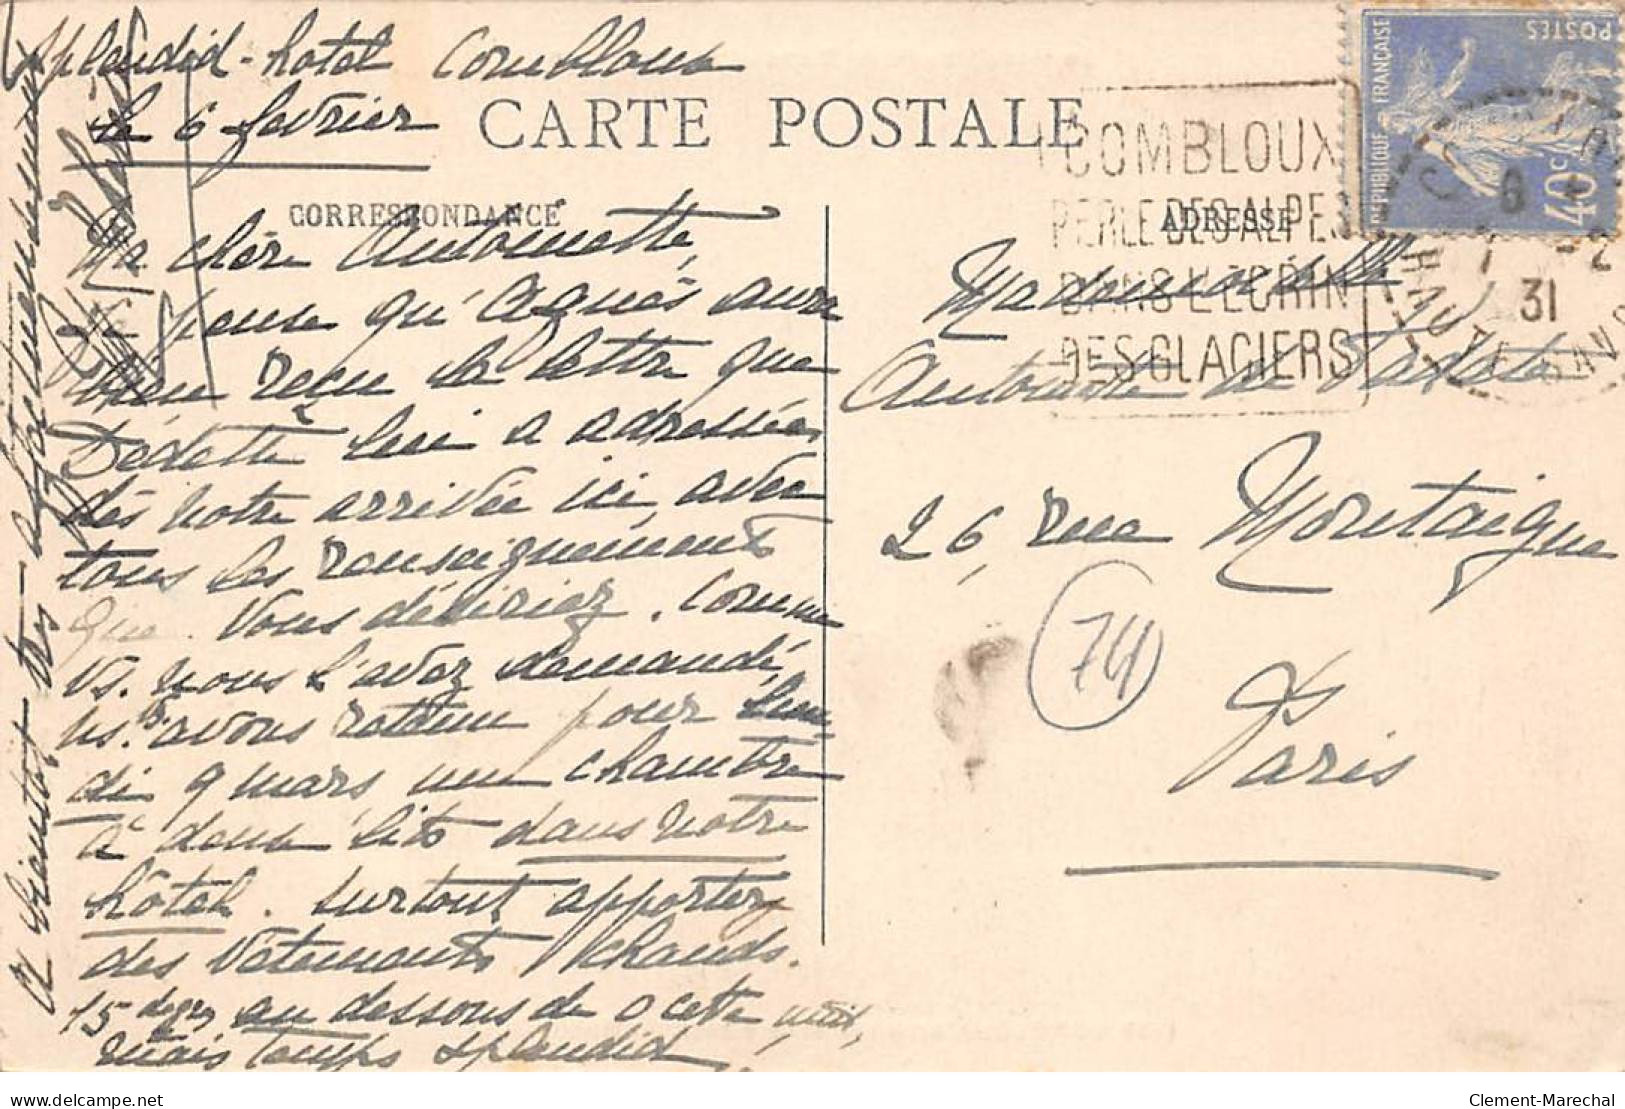 Splendid-hotel Combloux
le 6 fevrier
CARTE POSTALE
CORRESPONDANCE
ADRESSE
Ma chère Antoinette,
Je pense qu'Agnès aura
bien reçu la lettre que
Dédette lui a adressée
dès notre arrivée ici avec
tous les renseignements
que vous désiriez. Comme
vs. nous l'avez demandé,
ns. avons retenu pour lun-
di 9 mars une chambre
à deux lits dans notre
hôtel. surtout apportez
des vêtements chauds.
15 degrés au dessous de 0 cette nuit,
mais temps splendid
A bientôt très affectueusement
COMBLOUX
PERLE DES ALPES
DANS L'ECRIN
DES GLACIERS
REPUBLIQUE FRANÇAISE
POSTES
40c
6
7 -2
31
HAUTE SAVO
Mademoiselle
Antoinette de
26, rue Montaigne
Paris
74
delcampe.net
Clement-Marechal